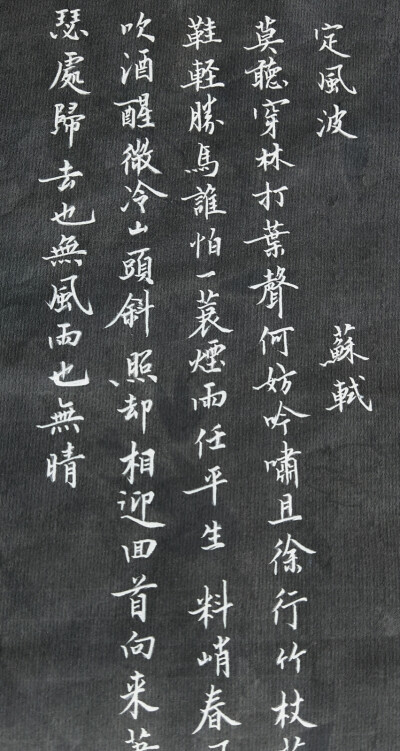 定風波 蘇軾
莫聽穿林打葉聲何妨吟嘯且徐行竹杖
鞋軽勝馬誰怕一蓑煙雨任平生料峭春
吹酒醒微冷山頭斜照却相迎回首向来
瑟處歸去也無風雨也無晴